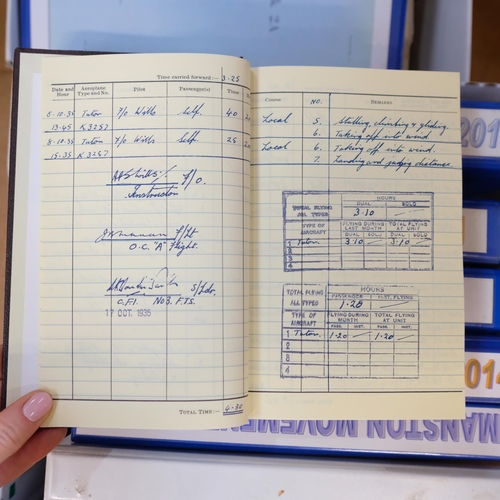 Time carried forward:— 3-25
Date and Hour Aeroplane Type and No. Pilot Passenger(s) Time
8-10-35 Tutor F/O Wills Self. 40
13-45 K3257
8-10-35 Tutor F/O Wills Self. 25
15-35 K3257
F/O.
Instructor
F/Lt
O.C. "A" Flight.
S/Ldr.
C.F.I. No 3. F.T.S.
17 OCT. 1935
TOTAL TIME:— 4-30
Course NO. REMARKS
Local 5. Stalling, climbing & gliding.
6. Taking off into wind.
Local 6. Taking off into wind.
7. Landing and judging distances.
TOTAL FLYING ALL TYPES HOURS
DUAL SOLO
3.10
TYPE OF AIRCRAFT FLYING DURING LAST MONTH TOTAL FLYING AT UNIT
DUAL SOLO DUAL SOLO
1 Tutor. 3.10 3.10
2
3
4
TOTAL FLYING ALL TYPES HOURS
PASSENGER INST. FLYING
1.20
TYPE OF AIRCRAFT FLYING DURING MONTH TOTAL FLYING AT UNIT
PASS. INST. PASS. INST.
1 Tutor. 1.20 1.20
2
3
4
201
014
MANSTON MOVEMEN